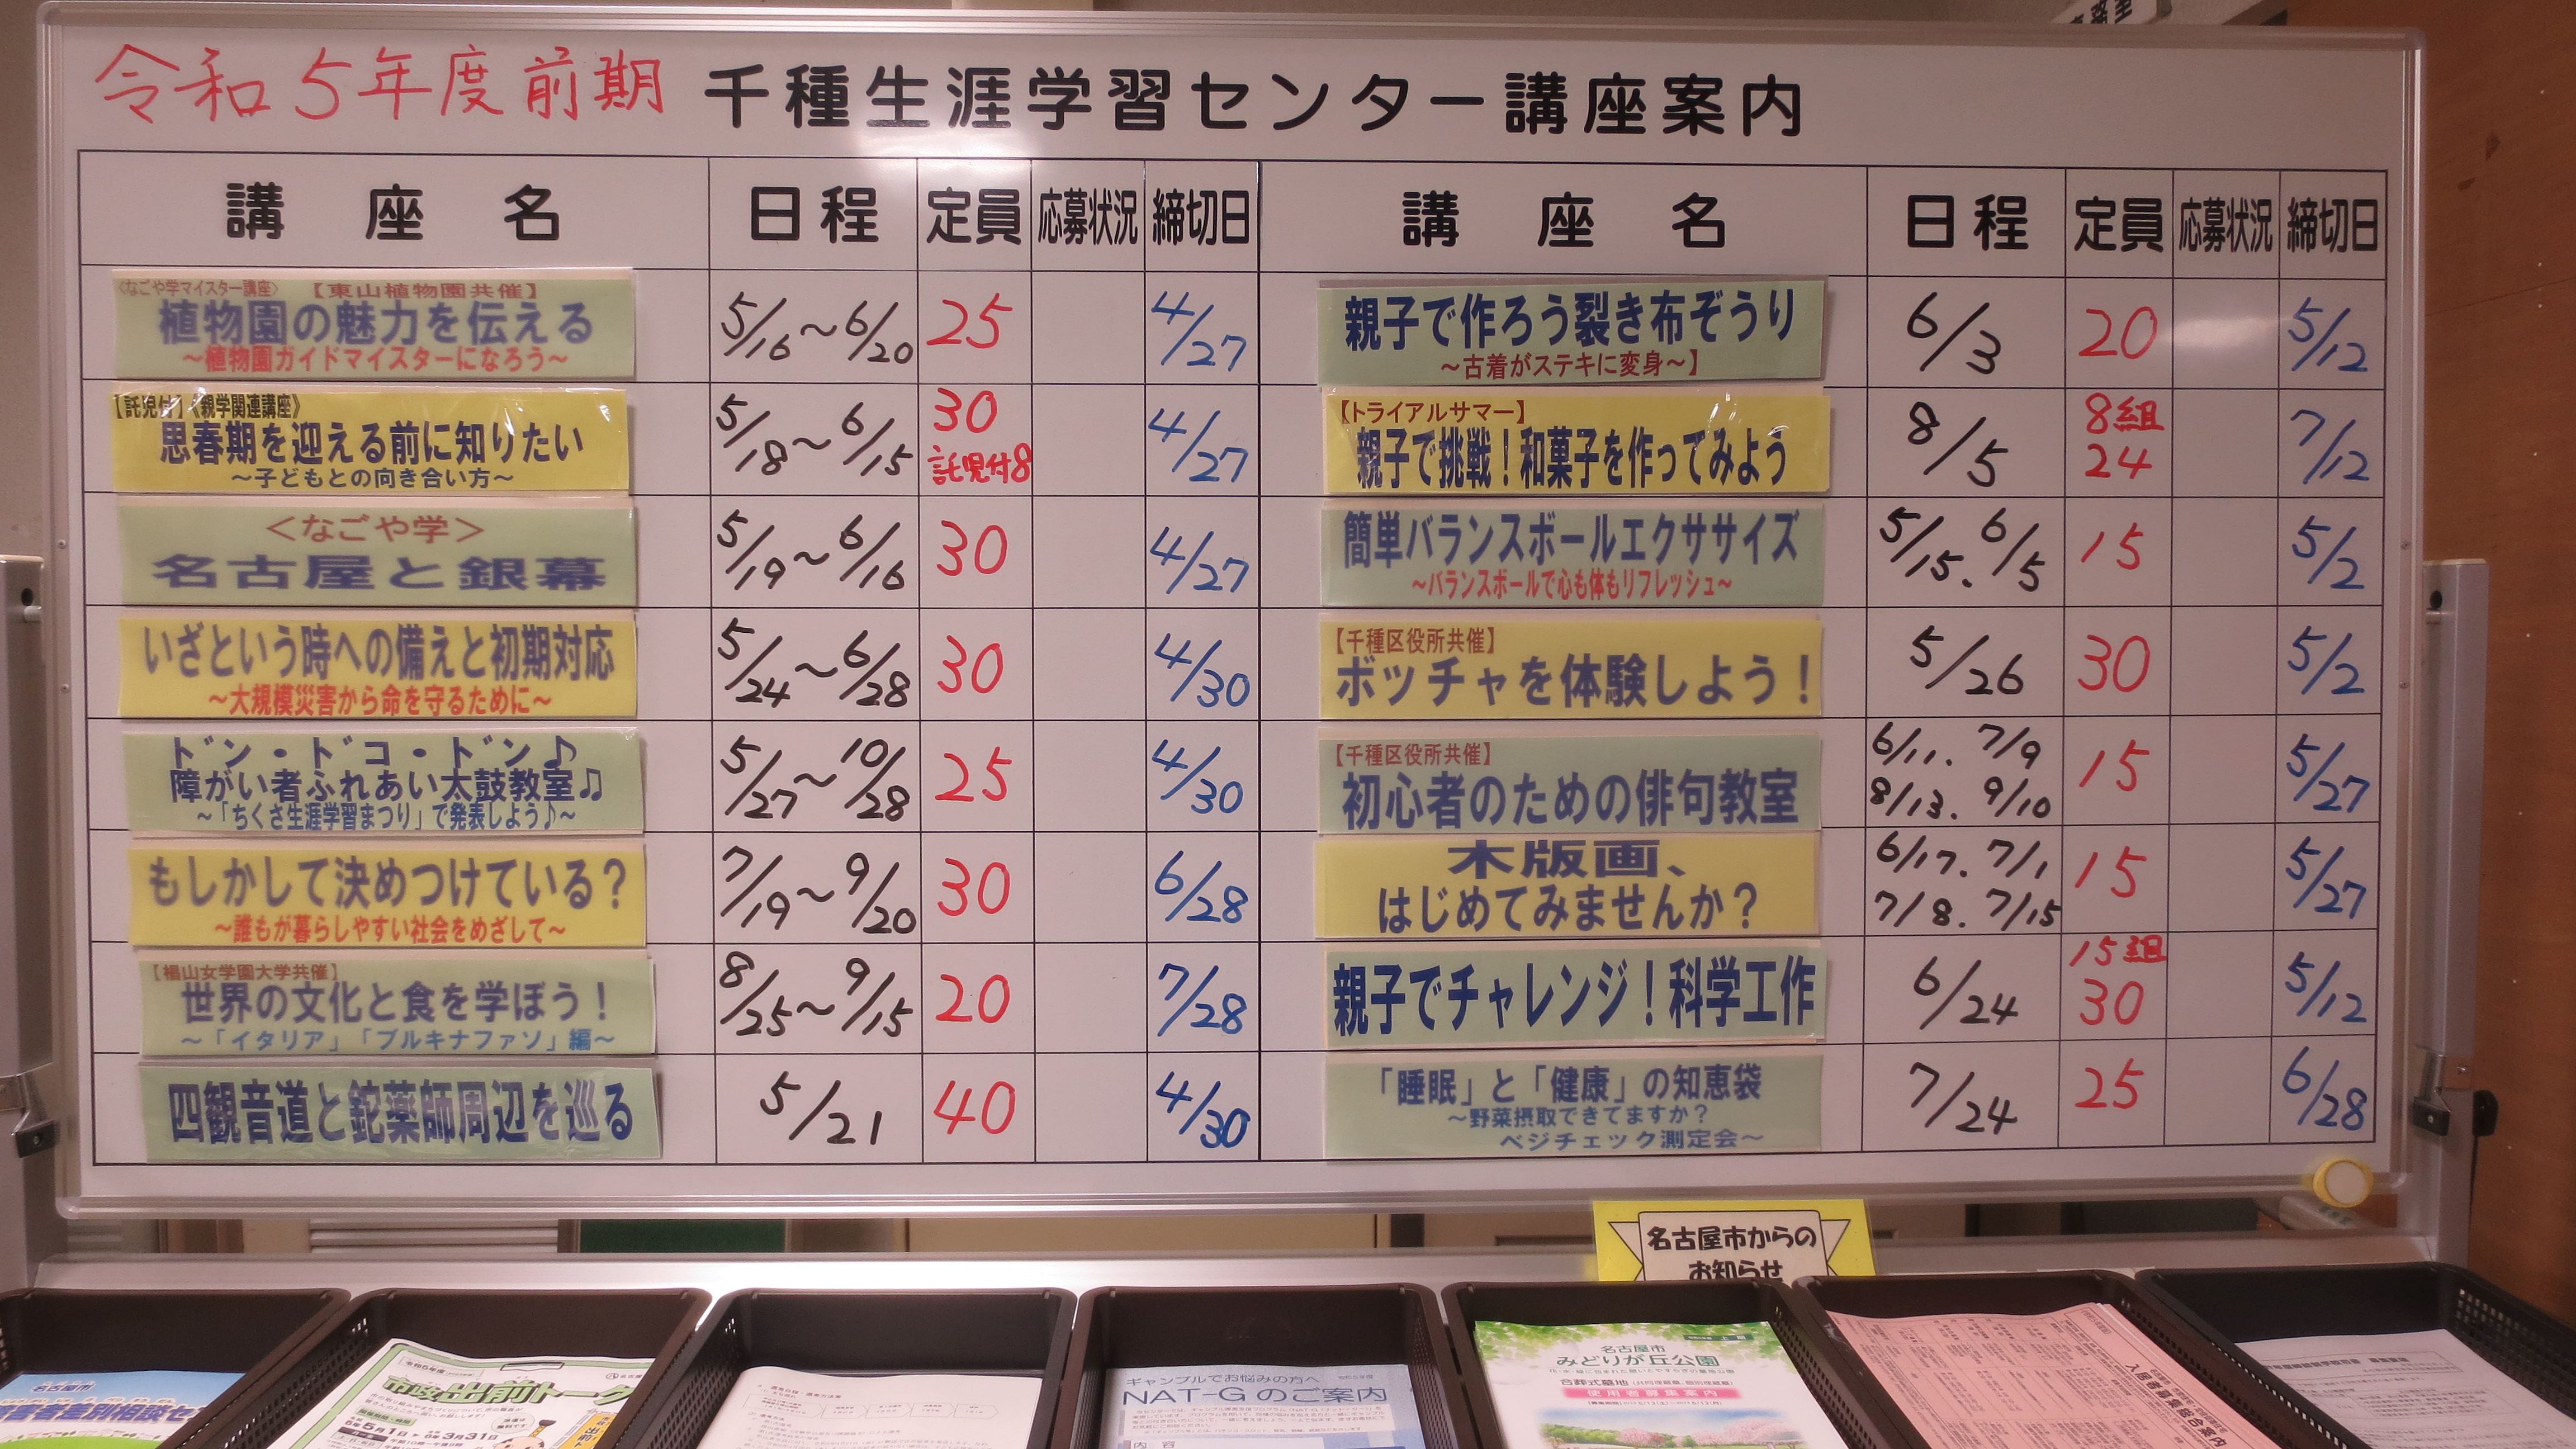 令和5年度前期 千種生涯学習センター講座案内
講座名 日程 定員 応募状況 締切日
〈なごや学マイスター講座〉 【東山植物園共催】
植物園の魅力を伝える
～植物園ガイドマイスターになろう～
5/16～6/20 25 4/27
【託児付】《親学関連講座》
思春期を迎える前に知りたい
～子どもとの向き合い方～
5/18～6/15 30 託児付8 4/27
＜なごや学＞
名古屋と銀幕
5/19～6/16 30 4/27
いざという時への備えと初期対応
～大規模災害から命を守るために～
5/24～6/28 30 4/30
ドン・ドコ・ドン♪
障がい者ふれあい太鼓教室♫
～「ちくさ生涯学習まつり」で発表しよう♪～
5/27～10/28 25 4/30
もしかして決めつけている？
～誰もが暮らしやすい社会をめざして～
7/19～9/20 30 6/28
【椙山女学園大学共催】
世界の文化と食を学ぼう！
～「イタリア」「ブルキナファソ」編～
8/25～9/15 20 7/28
四観音道と鉈薬師周辺を巡る
5/21 40 4/30
講座名 日程 定員 応募状況 締切日
親子で作ろう裂き布ぞうり
～古着がステキに変身～】
6/3 20 5/12
【トライアルサマー】
親子で挑戦！和菓子を作ってみよう
8/5 8組 24 7/12
簡単バランスボールエクササイズ
～バランスボールで心も体もリフレッシュ～
5/15. 6/5 15 5/2
【千種区役所共催】
ボッチャを体験しよう！
5/26 30 5/2
【千種区役所共催】
初心者のための俳句教室
6/11. 7/9
8/13. 9/10
15 5/27
木版画、
はじめてみませんか？
6/17. 7/1
7/8. 7/15
15 5/27
親子でチャレンジ！科学工作
6/24 15組 30 5/12
「睡眠」と「健康」の知恵袋
～野菜摂取できてますか？
ベジチェック測定会～
7/24 25 6/28
名古屋市からの
お知らせ
名古屋市
障害者差別相談セ
令和5年度
市政出前トーク
ギャンブルでお悩みの方へ
NAT-Gのご案内
内 容
名古屋市
みどりが丘公園
合葬式墓地
使用者募集案内
入居者募集総合案内